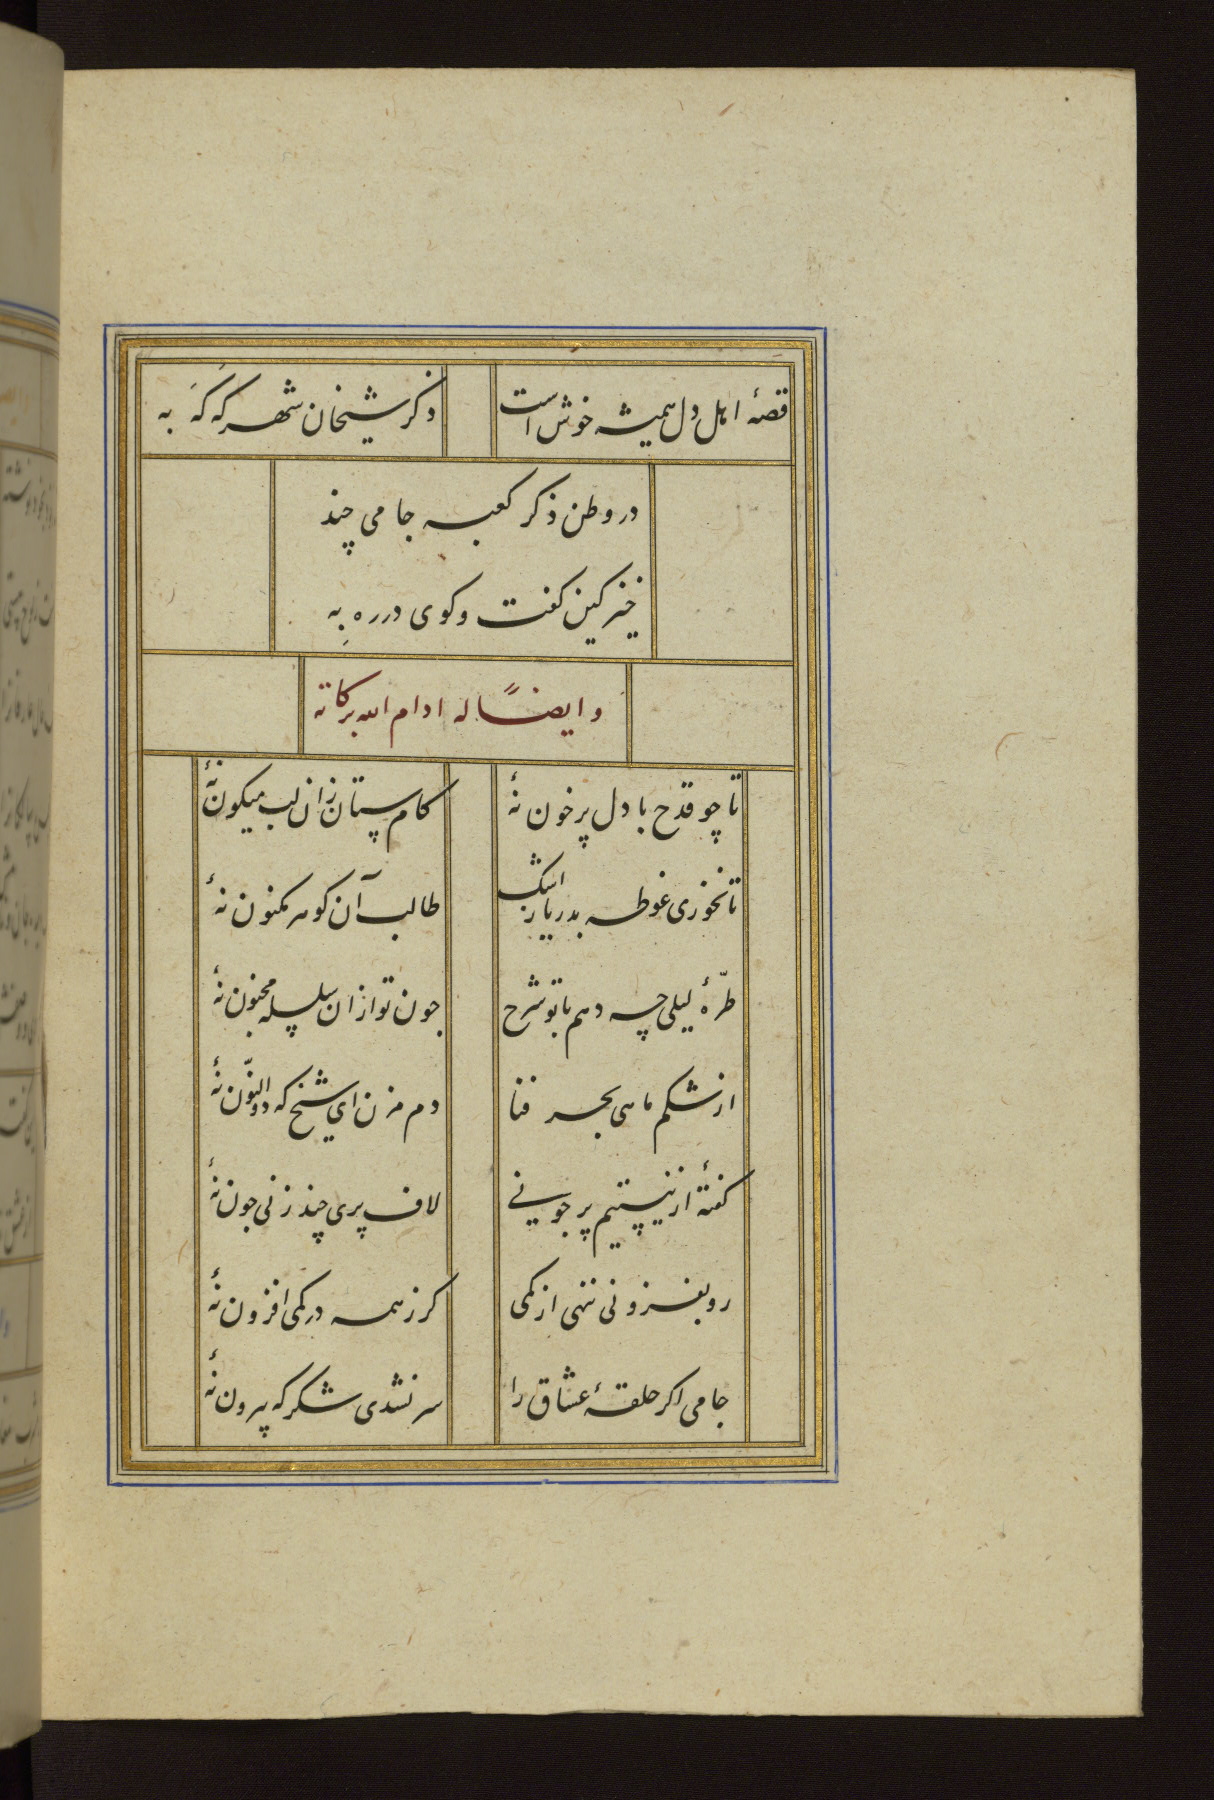 قصهٔ اهل دل همیشه خوش است
ذکر شیخان شهر که که به
در وطن ذکر کعبه جامی چند
خیز کین کفت وکوی در ره به
و ایضاً له ادام الله برکاته
تا چو قدح با دل پر خون نهٔ
کام ستان زان لب میکون نهٔ
تا نخوری غوطه بدریار اشک
طالب آن کوهر مکنون نهٔ
طرّهٔ لیلی چه دهم با تو شرح
جون تو ازان سلسله مجنون نهٔ
از شکم ماهی بحر فنا
دم مزن ای شیخ که ذوالنّون نهٔ
کفتهٔ از نیستیم پر جویی
لاف پری چند زنی جون نهٔ
رو بفزونی ننهی از کمی
کر ز همه در کمی افزون نهٔ
جامی اکر حلقهٔ عشاق را
سر نشدی شکر که بیرون نهٔ